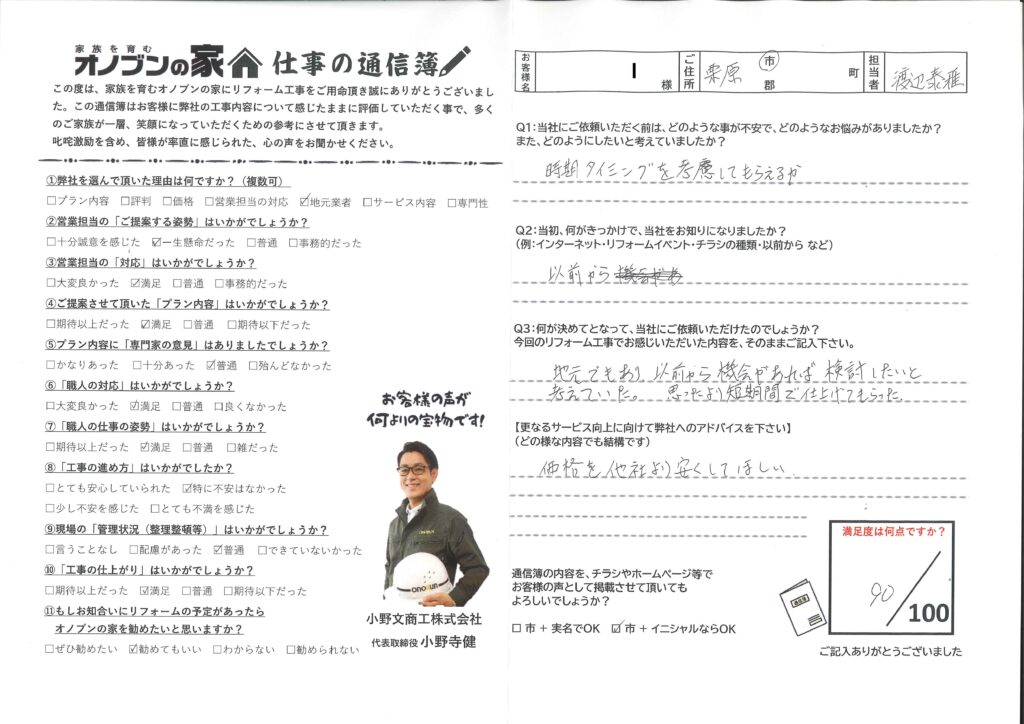 家族を育む
オノブンの家 仕事の通信簿
この度は、家族を育むオノブンの家にリフォーム工事をご用命頂き誠にありがとうございまし
た。この通信簿はお客様に弊社の工事内容について感じたままに評価していただく事で、多く
のご家族が一層、笑顔になっていただくための参考にさせて頂きます。
叱咤激励を含め、皆様が率直に感じられた、心の声をお聞かせください。
①弊社を選んで頂いた理由は何ですか？（複数可）
□プラン内容 □評判 □価格 □営業担当の対応 ☑地元業者 □サービス内容 □専門性
②営業担当の「ご提案する姿勢」はいかがでしょうか？
□十分誠意を感じた ☑一生懸命だった □普通 □事務的だった
③営業担当の「対応」はいかがでしょうか？
□大変良かった ☑満足 □普通 □事務的だった
④ご提案させて頂いた「プラン内容」はいかがでしょうか？
□期待以上だった ☑満足 □普通 □期待以下だった
⑤プラン内容に「専門家の意見」はありましたでしょうか？
□かなりあった □十分あった ☑普通 □殆んどなかった
⑥「職人の対応」はいかがでしょうか？
□大変良かった ☑満足 □普通 □良くなかった
⑦「職人の仕事の姿勢」はいかがでしょうか？
□期待以上だった ☑満足 □普通 □雑だった
⑧「工事の進め方」はいかがでしたか？
□とても安心していられた ☑特に不安はなかった
□少し不安を感じた □とても不満を感じた
⑨現場の「管理状況（整理整頓等）」はいかがでしょうか？
□言うことなし □配慮があった ☑普通 □できていないかった
⑩「工事の仕上がり」はいかがでしょうか？
□期待以上だった ☑満足 □普通 □期待以下だった
⑪もしお知合いにリフォームの予定があったら
オノブンの家を勧めたいと思いますか？
□ぜひ勧めたい ☑勧めてもいい □わからない □勧められない
お客様の声が
何よりの宝物です！
onobun
小野文商工株式会社
代表取締役 小野寺健
お客様名 I 様 ご住所 栗原 市 郡 町 担当者 渡辺泰雅
Q1：当社にご依頼いただく前は、どのような事が不安で、どのようなお悩みがありましたか？
また、どのようにしたいと考えていましたか？
時期タイミングを考慮してもらえるか
Q2：当初、何がきっかけで、当社をお知りになりましたか？
（例：インターネット・リフォームイベント・チラシの種類・以前から など）
以前から
Q3：何が決めてとなって、当社にご依頼いただけたのでしょうか？
今回のリフォーム工事でお感じいただいた内容を、そのままご記入下さい。
地元でもあり 以前から機会があれば 検討したいと
考えていた。 思ったより短期間で仕上げてもらった
【更なるサービス向上に向けて弊社へのアドバイスを下さい】
（どの様な内容でも結構です）
価格を他社より安くしてほしい
通信簿の内容を、チラシやホームページ等で
お客様の声として掲載させて頂いても
よろしいでしょうか？
□ 市 + 実名でOK ☑ 市 + イニシャルならOK
満足度は何点ですか？
90/100
ご記入ありがとうございました